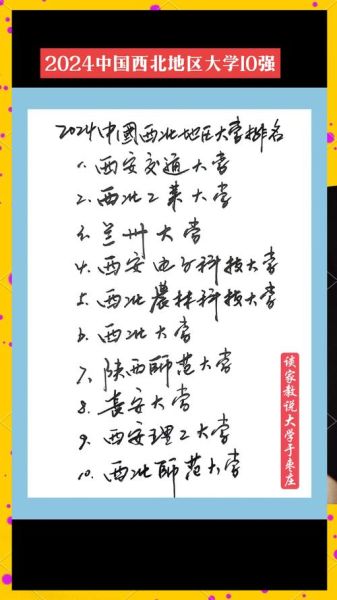 2024中国西北地区大学10强
2024中國西北地区大学排名
1.西安交通大学
2.西北工业大学
3.兰州大学
4.西安电子科技大学
5.西北農林科技大学
6.西北大学
7.陕西師范大学
8.長安大学
9.西安理工大学
10.西北師范大学
谈家教说大学于枣庄